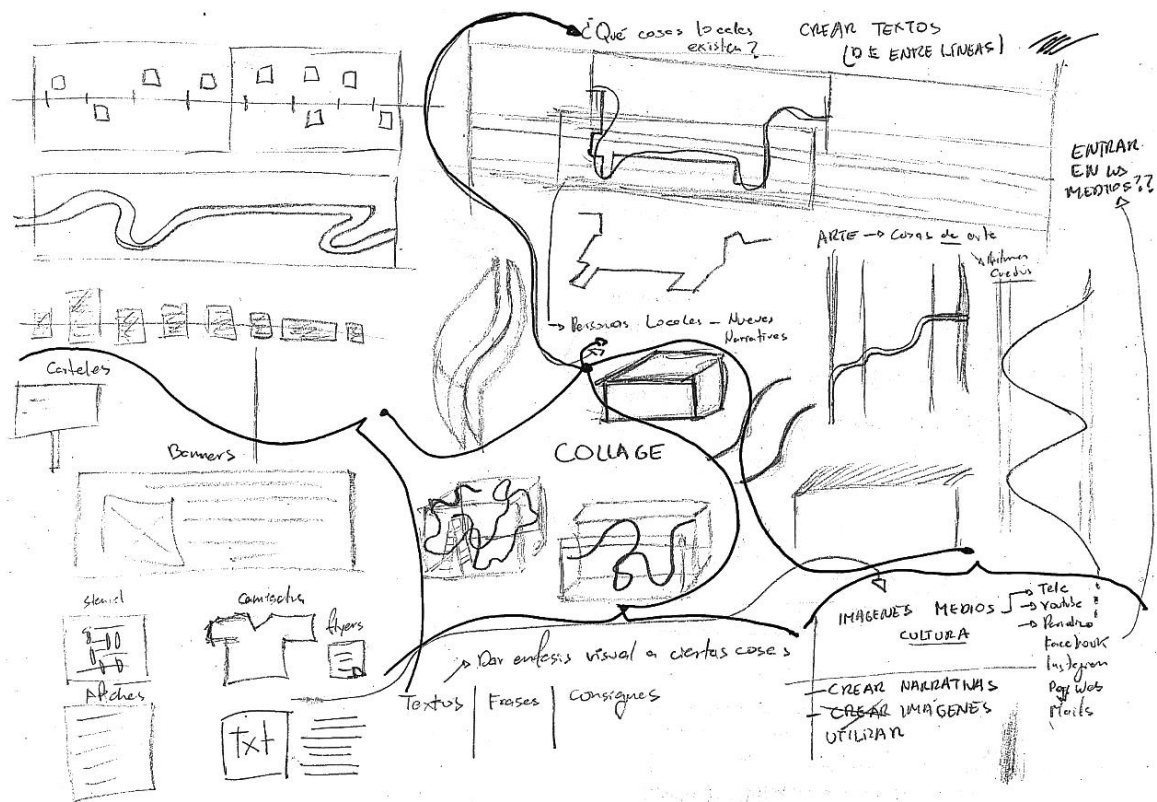 ¿Qué cosas locales
existen?
CREAR TEXTOS
(DE ENTRE LINEAS)
ENTRAR
EN LOS
MEDIOS??
ARTE → Cosas de arte
→ Personas Locales – Nuevas
Narrativas
Carteles
COLLAGE
Banners
stencil
camisetas
flyers
Afiches
txt
Dar enfasis visual a ciertas cosas
Textos | Frases | Consignas
IMAGENES MEDIOS
CULTURA
Tele
Youtube
Facebook
Instagram
Pag web
Mails
- CREAR NARRATIVAS
- CREAR IMÁGENES
UTILIZAR